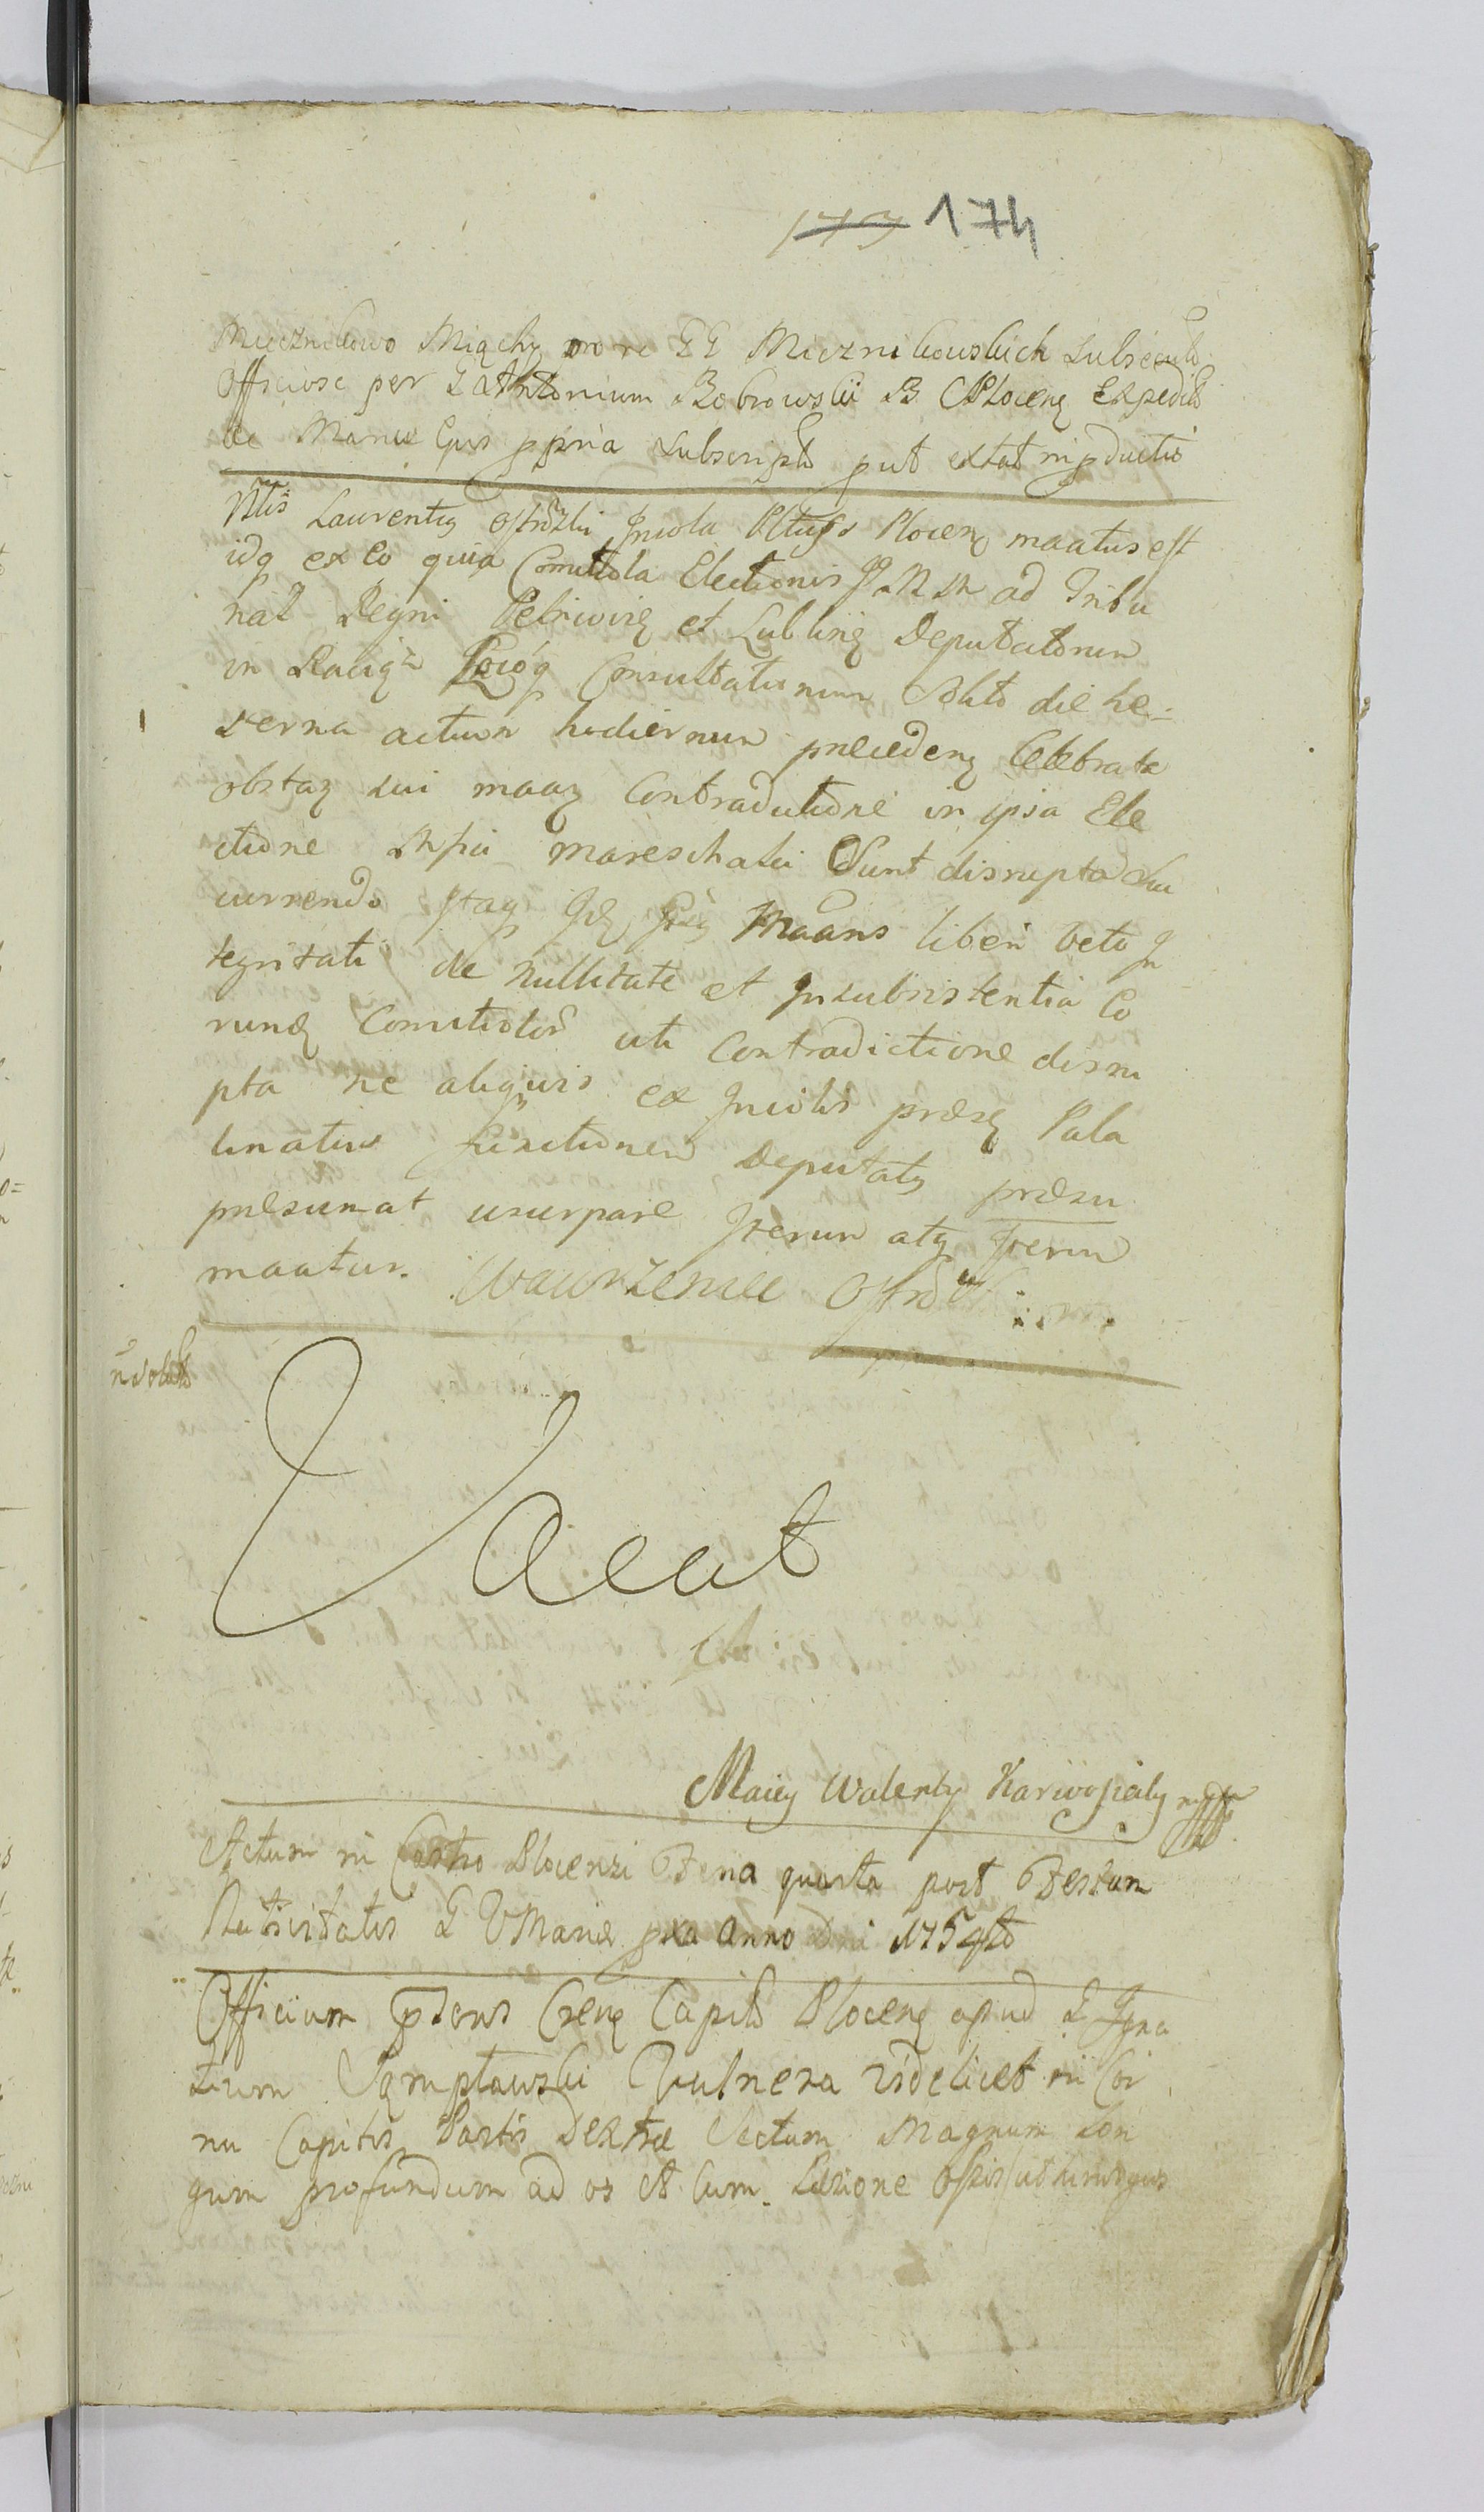 173 174
Miecznikowo Miąchy pro re GG Mieznikowskich Subsecuto
Officiose per G Anthonium Bobrowski B C Plocens Expedito
ac Manu Ejus ppria Subscripto put extat in pductio
Nlis Laurentius Ostrozki Incola Pltus Plocens maatus est
idq ex eo quia Comitiola Electionis JJ MM ad Tribu
nal Regni Petricoviens et Lublinens Deputatorum
in Raciąż Locoq Consultationum Solito die he=
sterna actum hodiernum præcedens Celebrata
obstan sui maan Contradictione in ipsa Ele
ctione Mfici mareschalci Sunt disrupta Su
currendo Itaq Idem Maans liberi Veto In
tegritati de Nullitate et Insubsistentia Eo
rund Comitiolor uti Contradictione disru
pta ne aliquis ex Incolis præsens Pala
tinatus functionem Deputatus præsu
præsumat usurpare Iterum atq Iterum
maatur. Wawrzeniec Ostro
Vacat
Maciey Walenty Karwosiecky mpp
Actum in Castro Plocensi Feria quarta post Festum
Nativitatis B V Mariæ pxa Anno Dni 1754to
Officium pdens Crens Capit Plocens apud G Igna
tium Sempławski Vulnera videlicet in Cor
nu Capitis Partis Dextræ Sectum Magnum Lon
gum profundum ad os et Cum Læsione Ossis